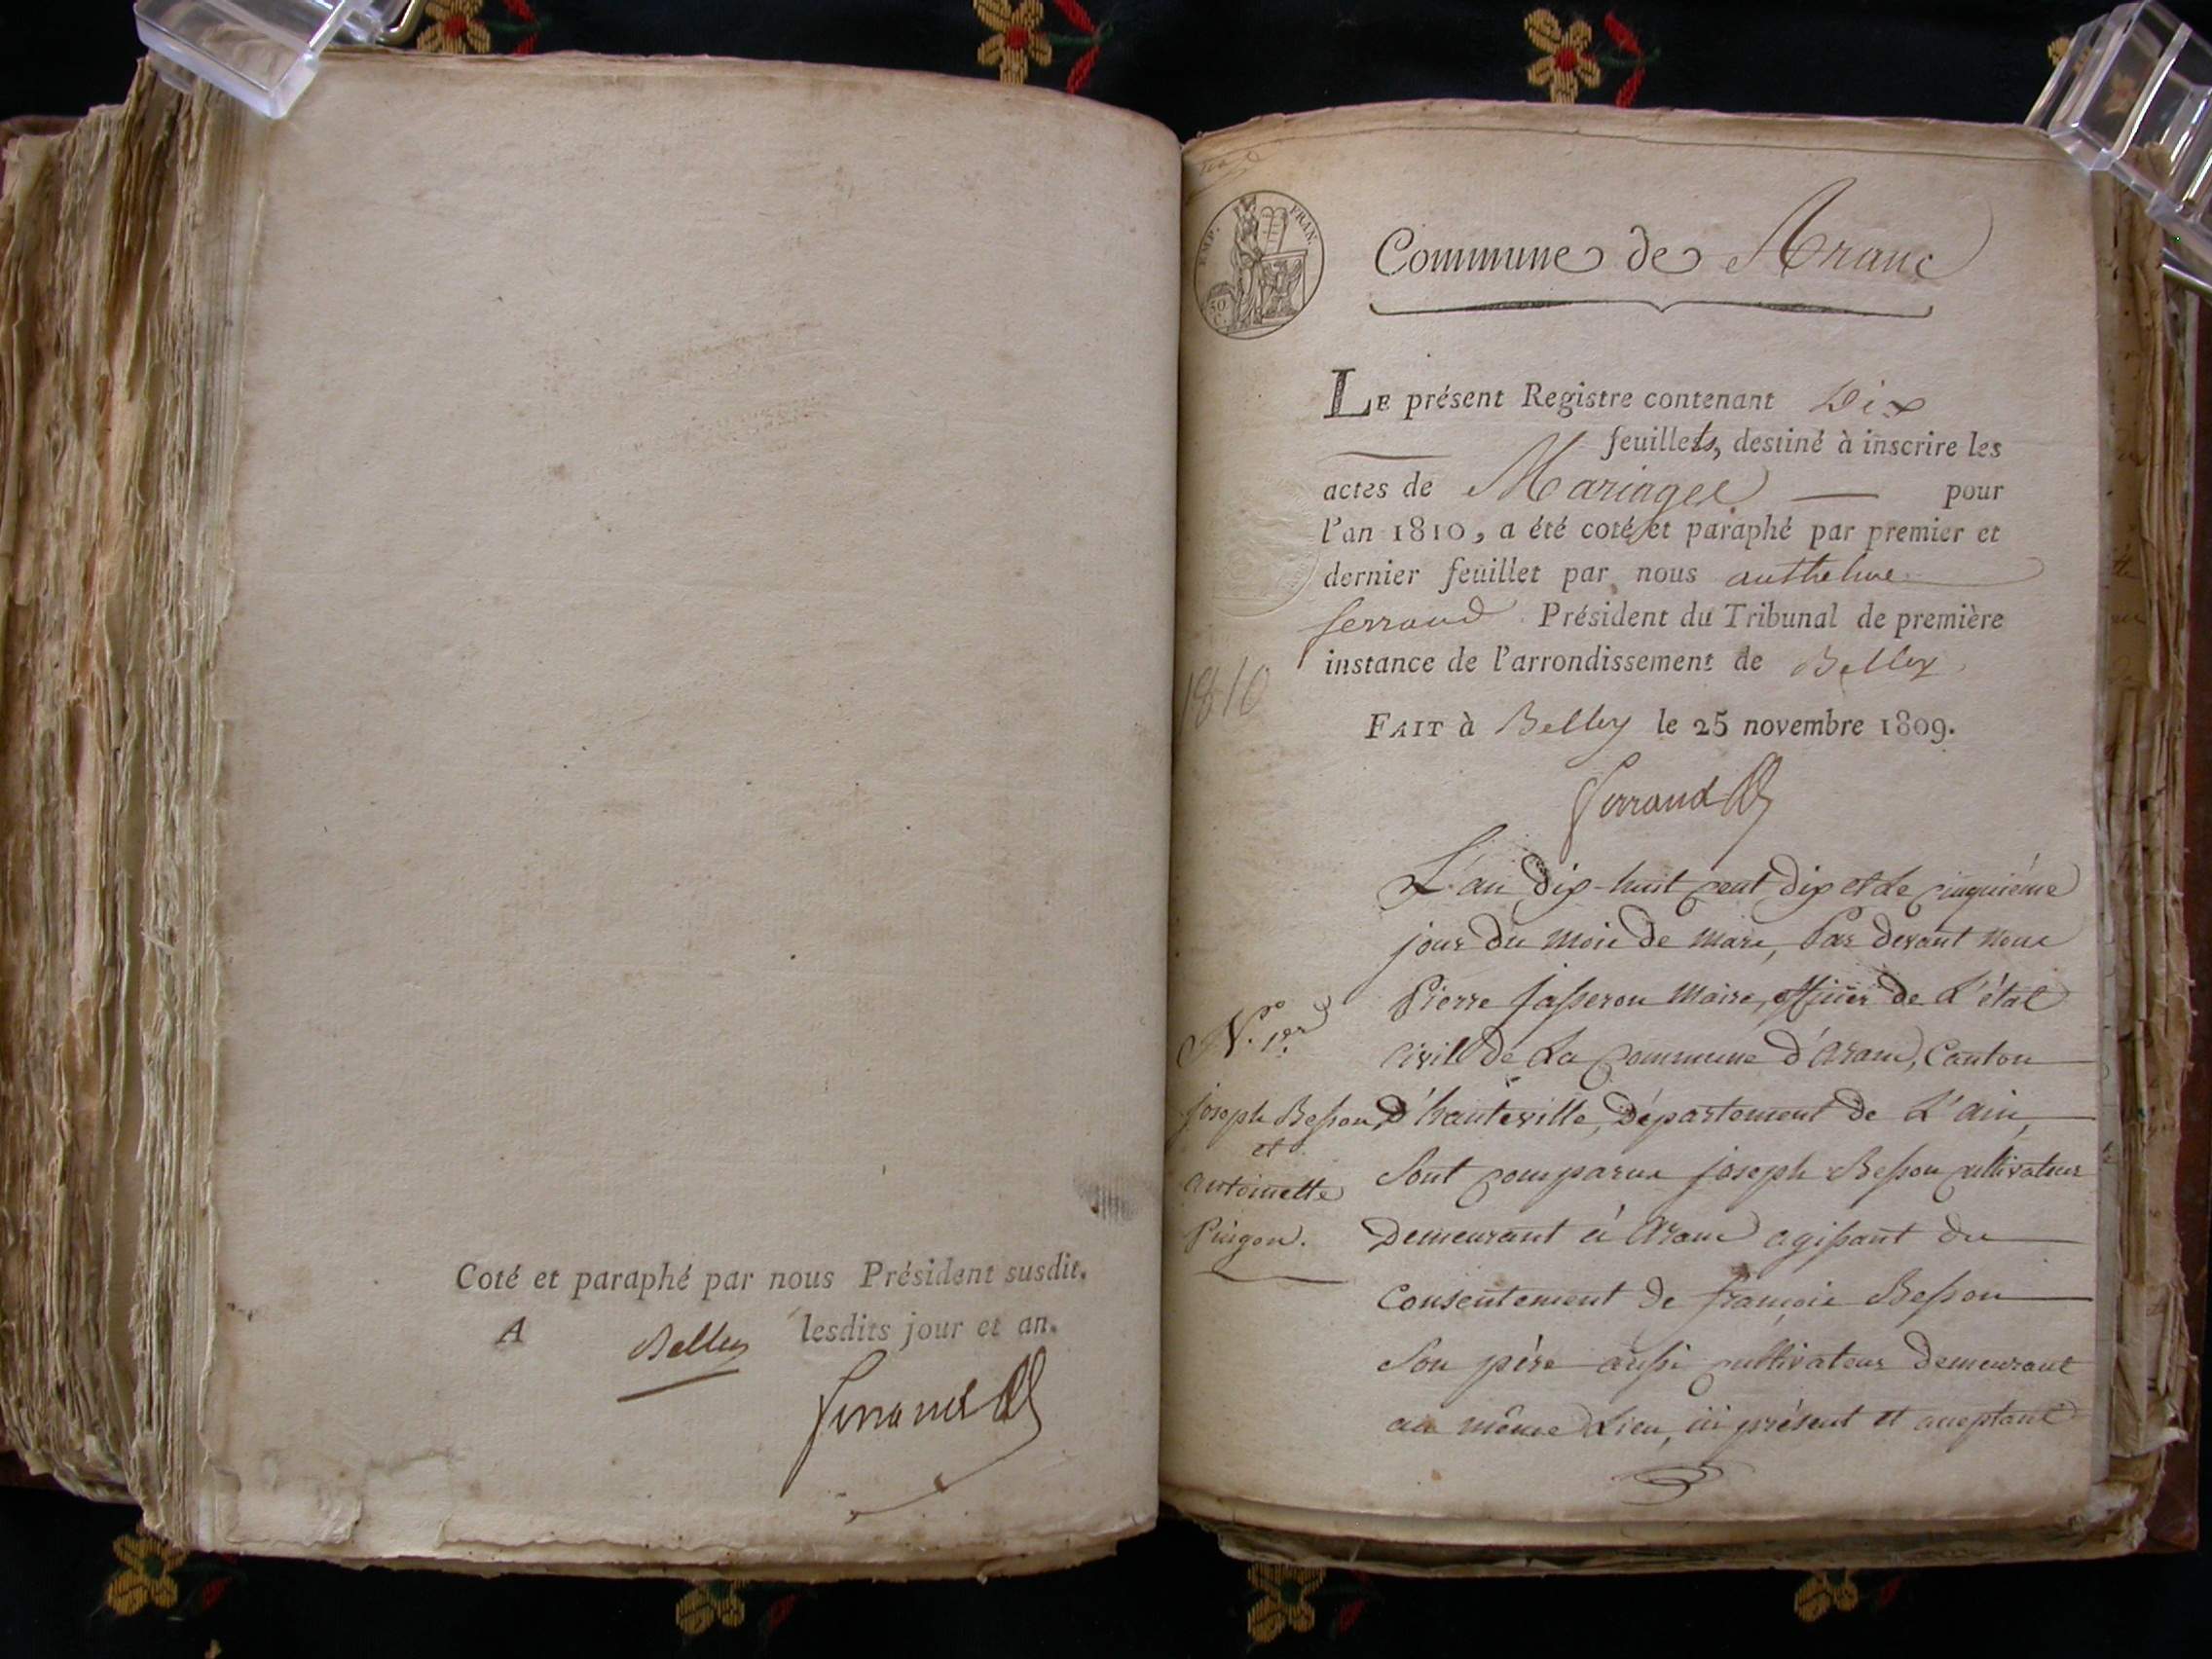 Coté et paraphé par nous Président susdit.
A Belley lesdits jour et an.
Ferrand
EMP. FRAN.
50 C.
Commune de Aranc
LE présent Registre contenant Dix
feuillets, destiné à inscrire les
actes de Mariages pour
l'an 1810, a été coté et paraphé par premier et
dernier feuillet par nous anthelme
ferrand Président du Tribunal de première
instance de l'arrondissement de Belley
1810
FAIT à Belley le 25 novembre 1809.
Ferrand
L'an Dix-huit cent dix et le cinquième
jour du mois de mars, Par devant nous
Pierre Jasseron Maire, officier de L'état
Civill de La Commune d'Aranc, Canton
d'hauteville, Département de L'ain,
Sont comparus joseph Besson cultivateur
Demeurant à Aranc agissant du
Consentement de françois Besson
Son père aussi cultivateur demeurant
au même Lieu, ici présent et acceptant
N.º 1er
joseph Besson
et
antoinette
Pingon.